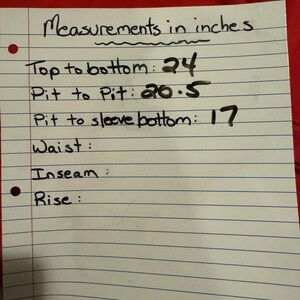 Measurements in inches
Top to bottom: 24
Pit to Pit: 20.5
Pit to sleeve bottom: 17
Waist:
Inseam:
Rise: